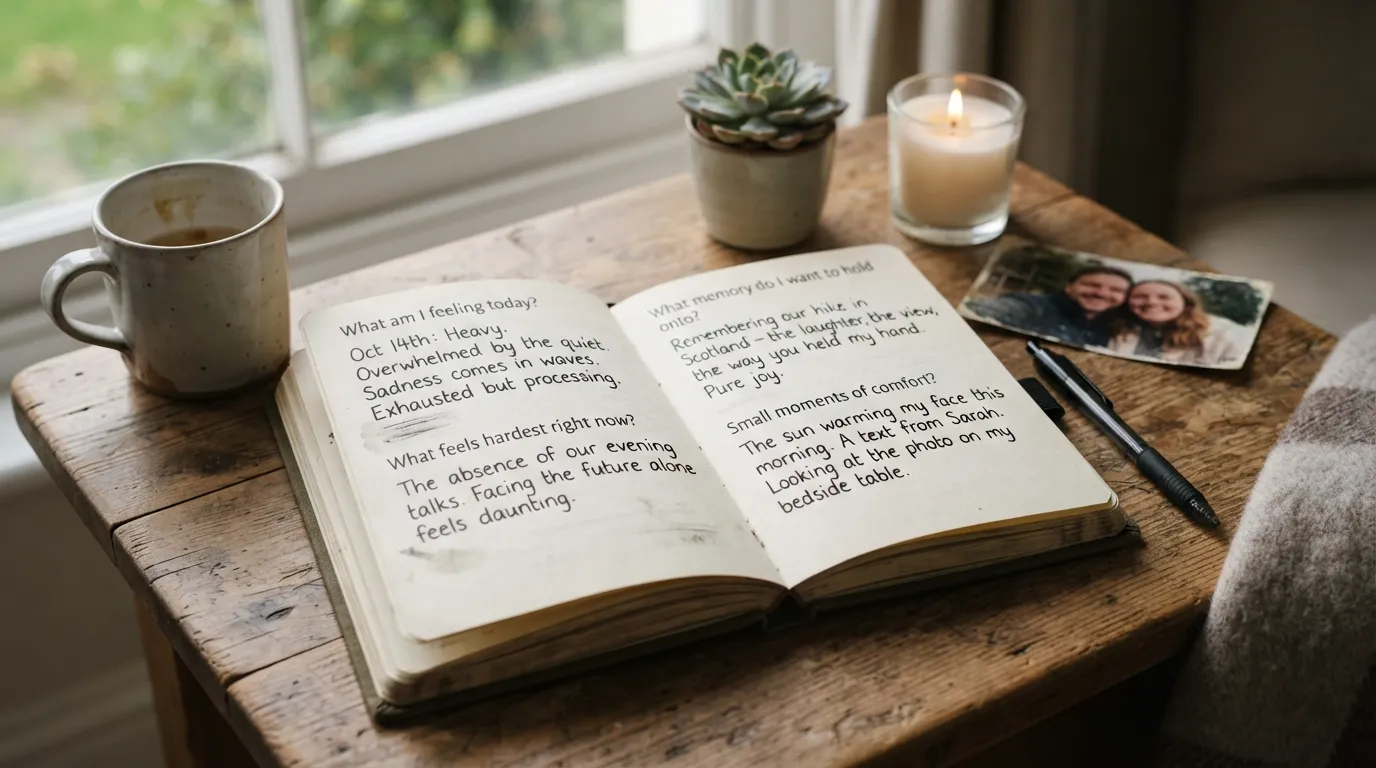 What am I feeling today?
Oct 14th: Heavy.
Overwhelmed by the quiet.
Sadness comes in waves.
Exhausted but processing.
What feels hardest right now?
The absence of our evening
talks. Facing the future alone
feels daunting.
What memory do I want to hold
onto?
Remembering our hike in
Scotland – the laughter, the view,
the way you held my hand.
Pure joy.
Small moments of comfort?
The sun warming my face this
morning. A text from Sarah.
Looking at the photo on my
bedside table.